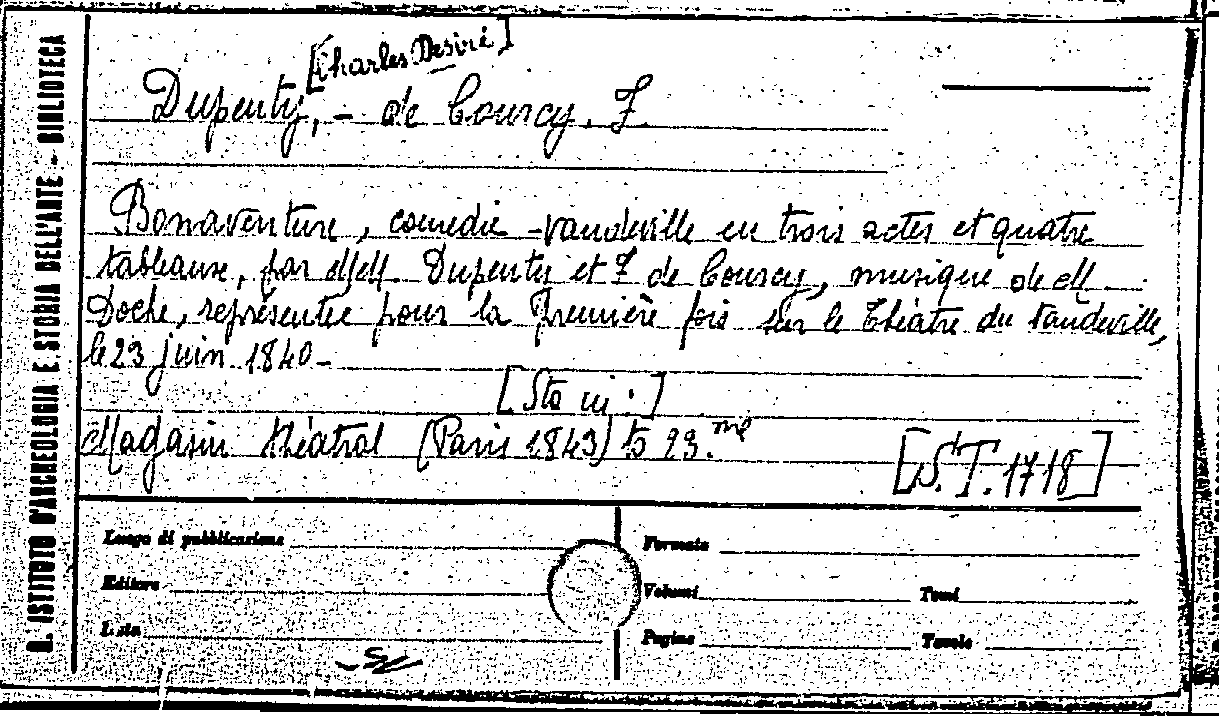 R. ISTITUTO D'ARCHEOLOGIA E STORIA DELL'ARTE - BIBLIOTECA
[Charles Desiré]
Dupeuty, - de Courcy. F.
Bonaventure, comedie -vaudeville en trois actes et quatre
tableaux, par MM. Dupeuty et F de Courcy, musique de M.
Doche, représentée pour la Première fois sur le Théatre du Vaudeville,
le 23 juin 1840-
[Sta in:]
Magasin théatral (Paris 1843) to 29.me
[S.T. 1718]
Luogo di pubblicazione
Formato
Editore
Volumi
Tomi
Lista
Pagine
Tavole